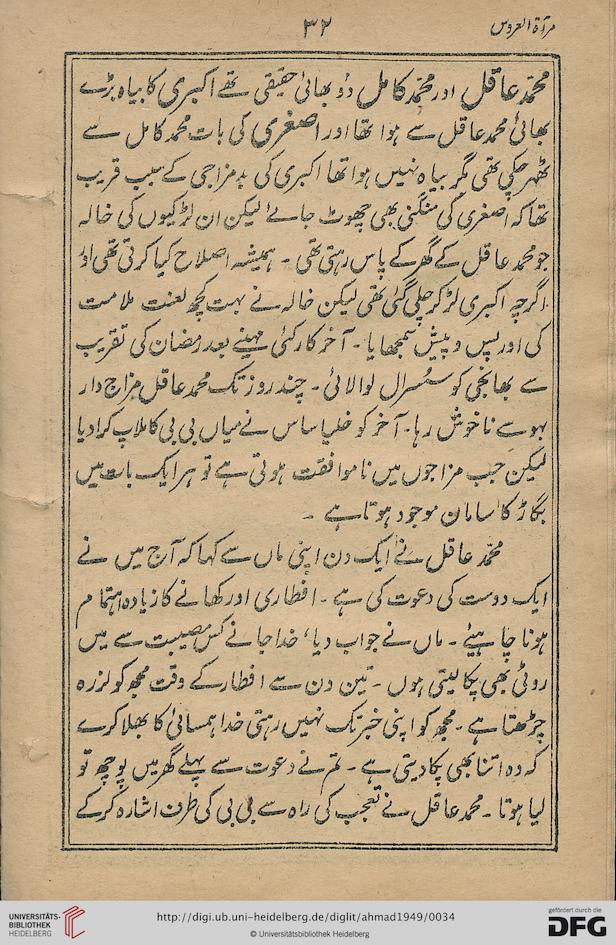 مرآۃ العروس
۳۲
محمّد عاقل اور محمّد کامل دو بھائی حقیقی تھے اکبری کا بیاہ بڑے
بھائی محمد عاقل سے ہوا تھا اور اصغری کی بات محمد کامل سے
ٹھہر چکی تھی مگر بیاہ نہیں ہوا تھا اکبری کی بدمزاجی کے سبب قریب
تھا کہ اصغری کی منگنی بھی چھوٹ جائے لیکن ان لڑکیوں کی خالہ
جو محمد عاقل کے گھر کے پاس رہتی تھی ۔ ہمیشہ اصلاح کیا کرتی تھی اؤ
اگرچہ اکبری لڑ کر چلی گئی تھی لیکن خالہ نے بہت کچھ لعنت ملامت
کی اور پس و پیش سمجھایا ۔ آخر کار کئی مہینے بعد رمضان کی تقریب
سے بھانجی کو سسرال لوا لائی ۔ چند روز تک محمد عاقل مزاج دار
بہو سے ناخوش رہا ۔ آخر کو خلیا ساس نے میاں بی بی کا ملاپ کرا دیا
لیکن جب مزاجوں میں ناموافقت ہوتی ہے تو ہر ایک بات میں
بگاڑ کا سامان موجود ہوتا ہے ۔
محمّد عاقل نے ایک دن اپنی ماں سے کہا کہ آج میں نے
ایک دوست کی دعوت کی ہے ۔ افطاری اور کھانے کا زیادہ اہتمام
ہونا چاہیئے ۔ ماں نے جواب دیا ، خدا جانے کس مصیبت سے میں
روٹی بھی پکا لیتی ہوں ۔ تین دن سے افطار کے وقت مجھ کو لرزہ
چڑھتا ہے ۔ مجھ کو اپنی خبر تک نہیں رہتی خدا ہمسائی کا بھلا کرے
کہ وہ اتنا بھی پکا دیتی ہے ۔ تم نے دعوت سے پہلے گھر میں پوچھ تو
لیا ہوتا ۔ محمد عاقل نے تعجب کی راہ سے بی بی کی طرف اشارہ کر کے
UNIVERSITÄTS-
BIBLIOTHEK
HEIDELBERG
http://digi.ub.uni-heidelberg.de/diglit/ahmad1949/0034
© Universitätsbibliothek Heidelberg
gefördert durch die
DFG